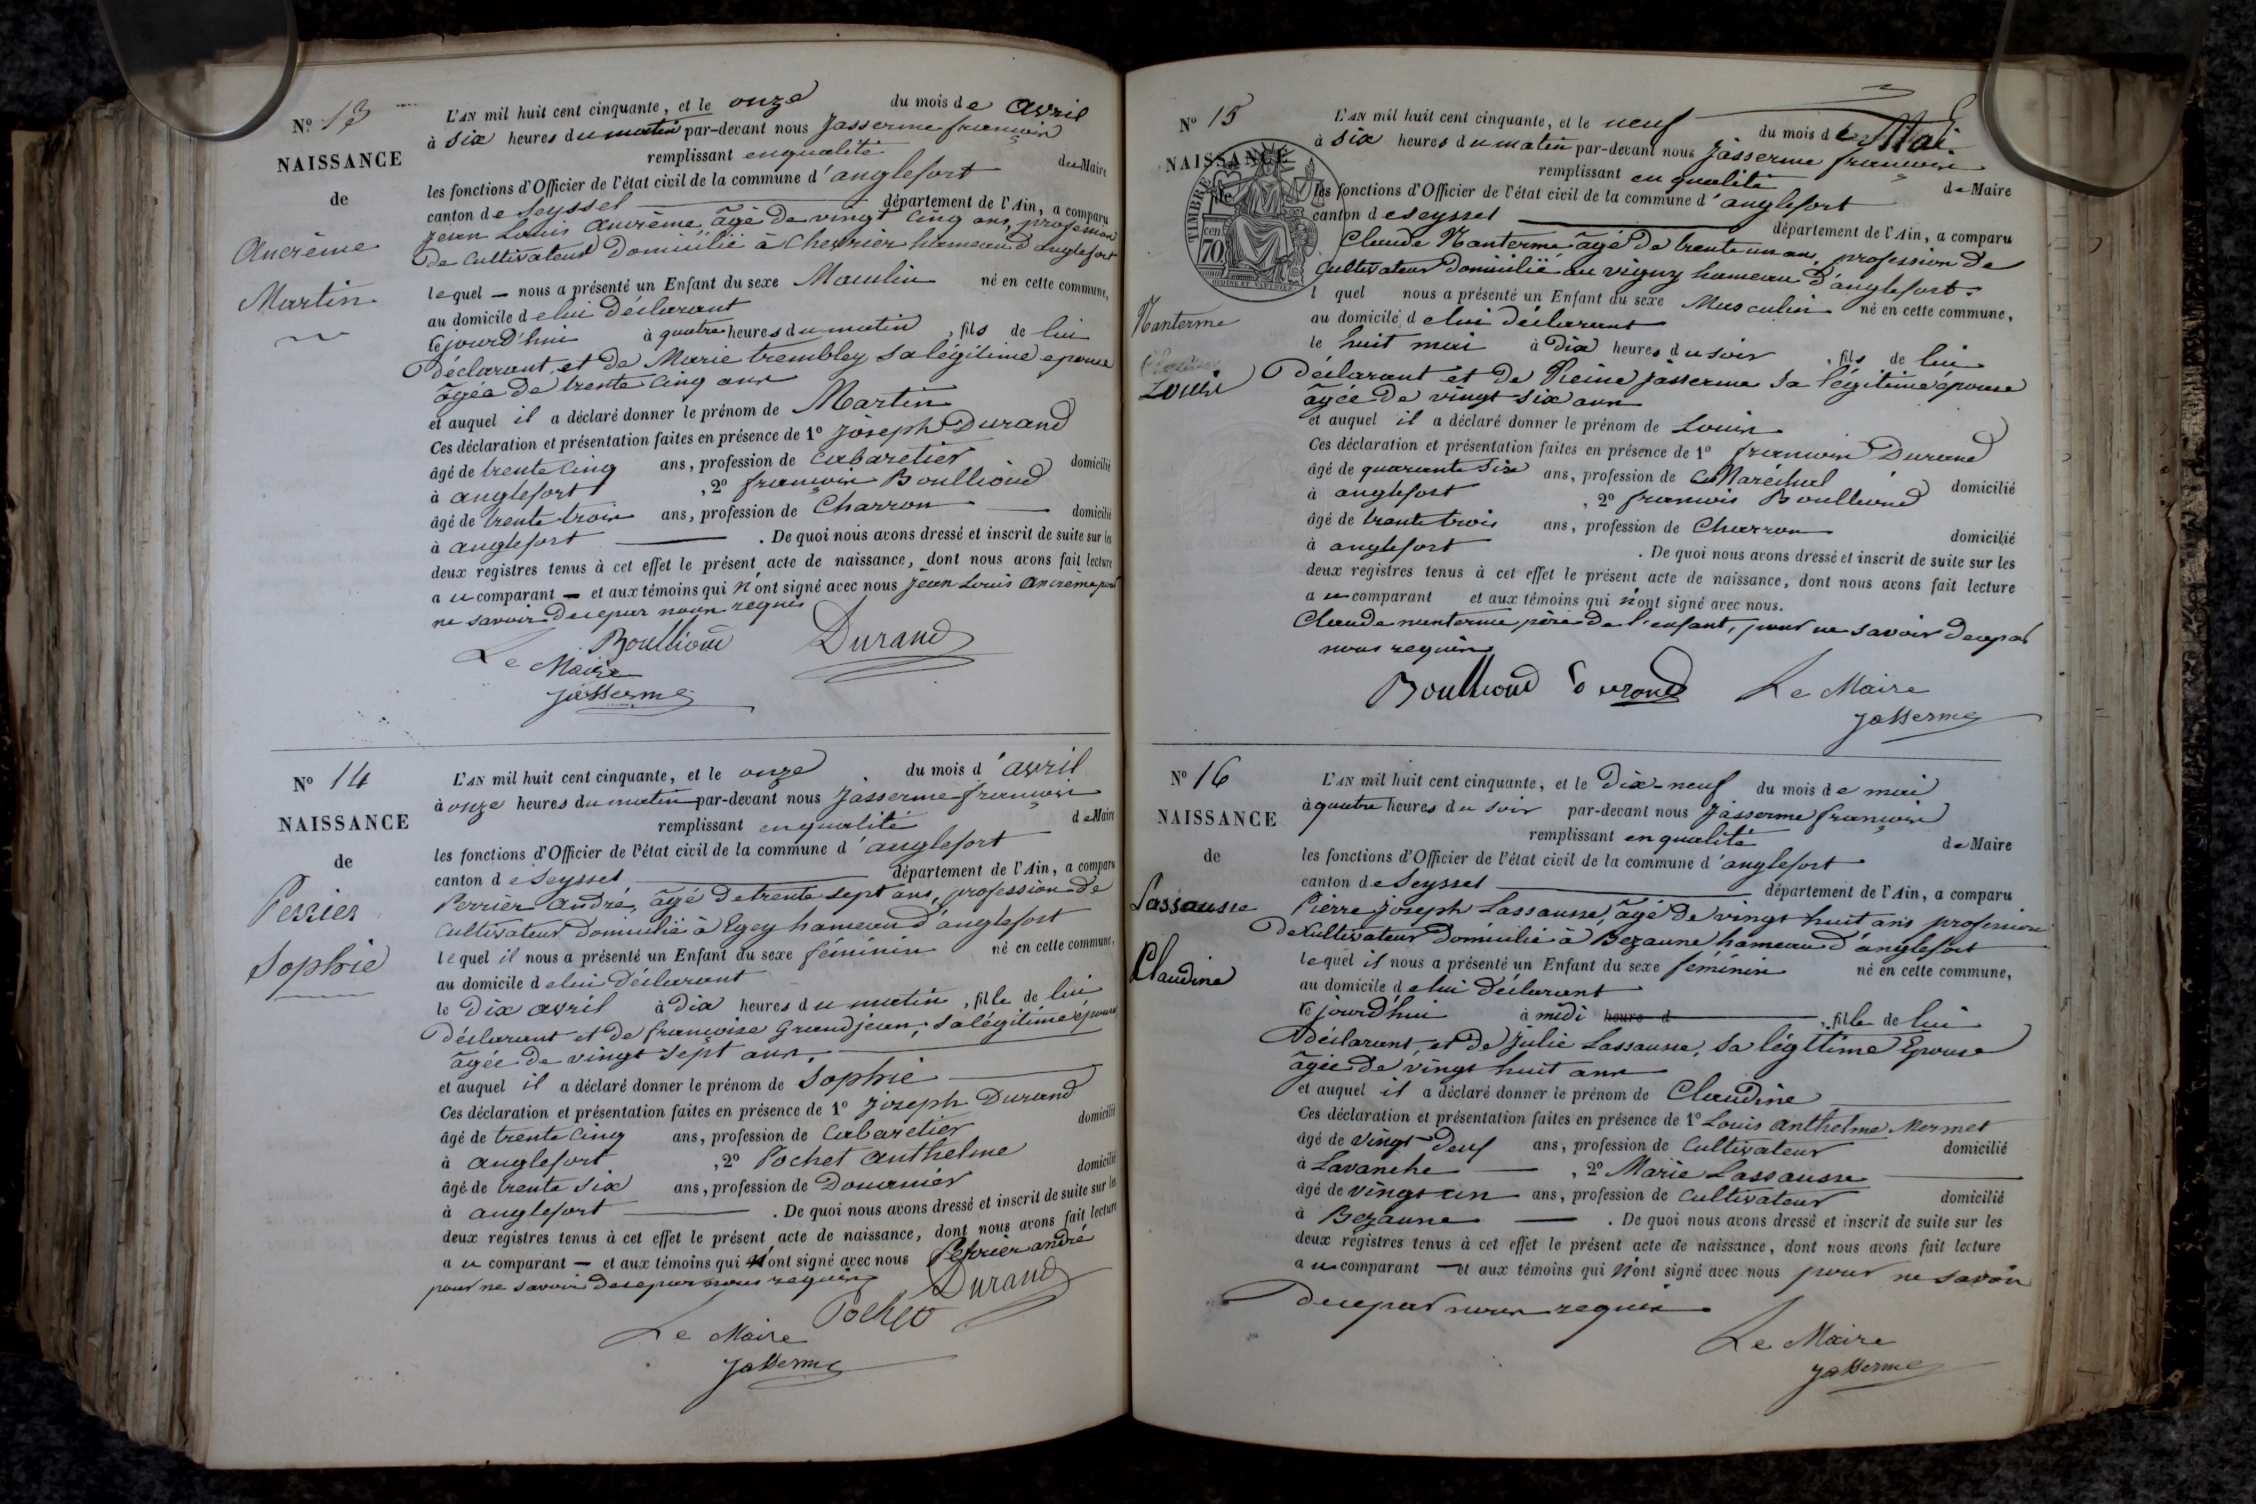 N° 13
NAISSANCE
de
Ancrème
Martin
L'AN mil huit cent cinquante, et le onze du mois de avril
à six heures du matin par-devant nous Jasserme françois
remplissant en qualité du Maire
les fonctions d'Officier de l'état civil de la commune d'anglefort
canton de Seyssel département de l'Ain, a comparu
Jean Louis Ancrème, âgé de vingt cinq ans, profession
de cultivateur Domicilié à Cherrier hameau d'anglefort
lequel nous a présenté un Enfant du sexe Masculin né en cette commune,
au domicile de lui Déclarant
ce jourd'hui à quatre heures du matin, fils de lui
Déclarant, et de Marie trembley sa légitime epouse
âgée de trente cinq ans
et auquel il a déclaré donner le prénom de Martin
Ces déclaration et présentation faites en présence de 1° Joseph Durand
âgé de trente cinq ans, profession de Cabaretier domicilié
à anglefort, 2° françois Boullioud
âgé de trente trois ans, profession de Charron domicilié
à anglefort. De quoi nous avons dressé et inscrit de suite sur les
deux registres tenus à cet effet le présent acte de naissance, dont nous avons fait lecture
au comparant et aux témoins qui n'ont signé avec nous Jean Louis Ancrème pour
ne savoir de ce par nous requis
Boullioud Durand
Le Maire
Jasserme
N° 14
NAISSANCE
de
Perrier
Sophie
L'AN mil huit cent cinquante, et le onze du mois d'avril
à onze heures du matin par-devant nous Jasserme françois
remplissant en qualité de Maire
les fonctions d'Officier de l'état civil de la commune d'anglefort
canton de Seyssel département de l'Ain, a comparu
Perrier André, âgé de trente sept ans, profession de
cultivateur Domicilié à Egey hameau d'anglefort
lequel il nous a présenté un Enfant du sexe féminin né en cette commune,
au domicile de lui Déclarant
le Dix avril à Dix heures du matin, fille de lui
Déclarant et de françoise Grandjean, sa légitime épouse
âgée de vingt sept ans.
et auquel il a déclaré donner le prénom de Sophie
Ces déclaration et présentation faites en présence de 1° Joseph Durand
âgé de trente cinq ans, profession de Cabaretier domicilié
à anglefort, 2° Pochet Anthelme
âgé de trente six ans, profession de Douanier domicilié
à anglefort. De quoi nous avons dressé et inscrit de suite sur les
deux registres tenus à cet effet le présent acte de naissance, dont nous avons fait lecture
au comparant et aux témoins qui n'ont signé avec nous Perrier andré
pour ne savoir de ce par nous requis
Pochet Durand
Le Maire
Jasserme
N° 15
NAISSANCE
de
TIMBRE
70 cen
Nanterme
Louis
L'AN mil huit cent cinquante, et le neuf du mois de Mai
à six heures du matin par-devant nous Jasserme françois
remplissant en qualité de Maire
les fonctions d'Officier de l'état civil de la commune d'anglefort
canton de Seyssel département de l'Ain, a comparu
Claude Nanterme âgé de trente un an, profession de
Cultivateur Domicilié au vigny hameau d'anglefort.
l quel nous a présenté un Enfant du sexe Masculin né en cette commune,
au domicile de lui déclarant
le huit mai à Dix heures du soir, fils de lui
Déclarant et de Reine Jasserme sa légitime épouse
âgée de vingt six ans
et auquel il a déclaré donner le prénom de Louis
Ces déclaration et présentation faites en présence de 1° françois Durand
âgé de quarante six ans, profession de Maréchal domicilié
à anglefort, 2° françois Boullioud
âgé de trente trois ans, profession de Charron domicilié
à anglefort. De quoi nous avons dressé et inscrit de suite sur les
deux registres tenus à cet effet le présent acte de naissance, dont nous avons fait lecture
au comparant et aux témoins qui n'ont signé avec nous.
Claude nanterme père de l'enfant, pour ne savoir de ce par
nous requis
Boullioud Durand Le Maire
Jasserme
N° 16
NAISSANCE
de
Lassausse
Claudine
L'AN mil huit cent cinquante, et le Dix-neuf du mois de mai
à quatre heures du soir par-devant nous Jasserme françois
remplissant en qualité de Maire
les fonctions d'Officier de l'état civil de la commune d'anglefort
canton de Seyssel département de l'Ain, a comparu
Pierre Joseph Lassausse, âgé de vingt huit ans profession
de Cultivateur Domicilié à Bezaune hameau d'anglefort
lequel il nous a présenté un Enfant du sexe féminin né en cette commune,
au domicile de lui déclarant
ce jourd'hui à midi heure d, fille de lui
Déclarant, et de Julie Lassausse, sa légitime Epouse
âgée de vingt huit ans
et auquel il a déclaré donner le prénom de Claudine
Ces déclaration et présentation faites en présence de 1° Louis anthelme Mermet
âgé de vingt Deuf ans, profession de Cultivateur domicilié
à Lavanche, 2° Marie Lassausse
âgé de vingt un ans, profession de Cultivateur domicilié
à Bezaune. De quoi nous avons dressé et inscrit de suite sur les
deux régistres tenus à cet effet le présent acte de naissance, dont nous avons fait lecture
au comparant et aux témoins qui n'ont signé avec nous pour ne savoir
de ce par nous requis
Le Maire
Jasserme